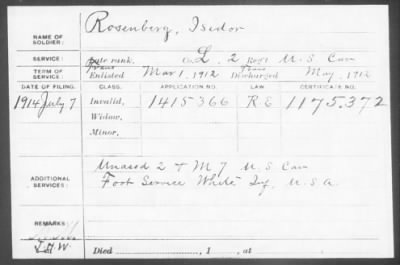 NAME OF SOLDIER: Rosenberg, Isidor
SERVICE: Late rank, Co. L, 2 Reg't U. S. Cav
TERM OF SERVICE: Enlisted Mar 1, 1912 Discharged May, 1912
DATE OF FILING. CLASS. APPLICATION NO. LAW. CERTIFICATE NO.
1914 July 7 Invalid, 1415366 R E 1175.372
Widow,
Minor,
ADDITIONAL SERVICES: Unassd 2 + M 7 U. S. Cav
Foot Service White Inf. U. S. A.
REMARKS:
Died , 1 , at